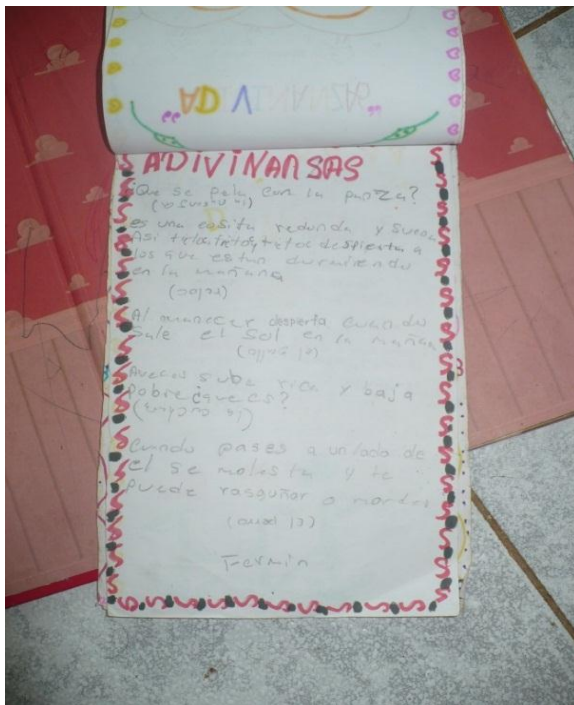 "ADIVINANZAS"
ADIVINANSAS
¿Que se pela con la panza?
es una cosita redonda y suena
Asi despierta a
los que estan durmiendo
en la mañana
(reloj)
Al manecer desperta cuando
Sale el Sol en la mañana
(el gallo)
Aveces sube rica y baja
Pobre ¿que es?
Cuando pases a un lado de
el se molesta y te
Puede rasguñar o morder
Fermin